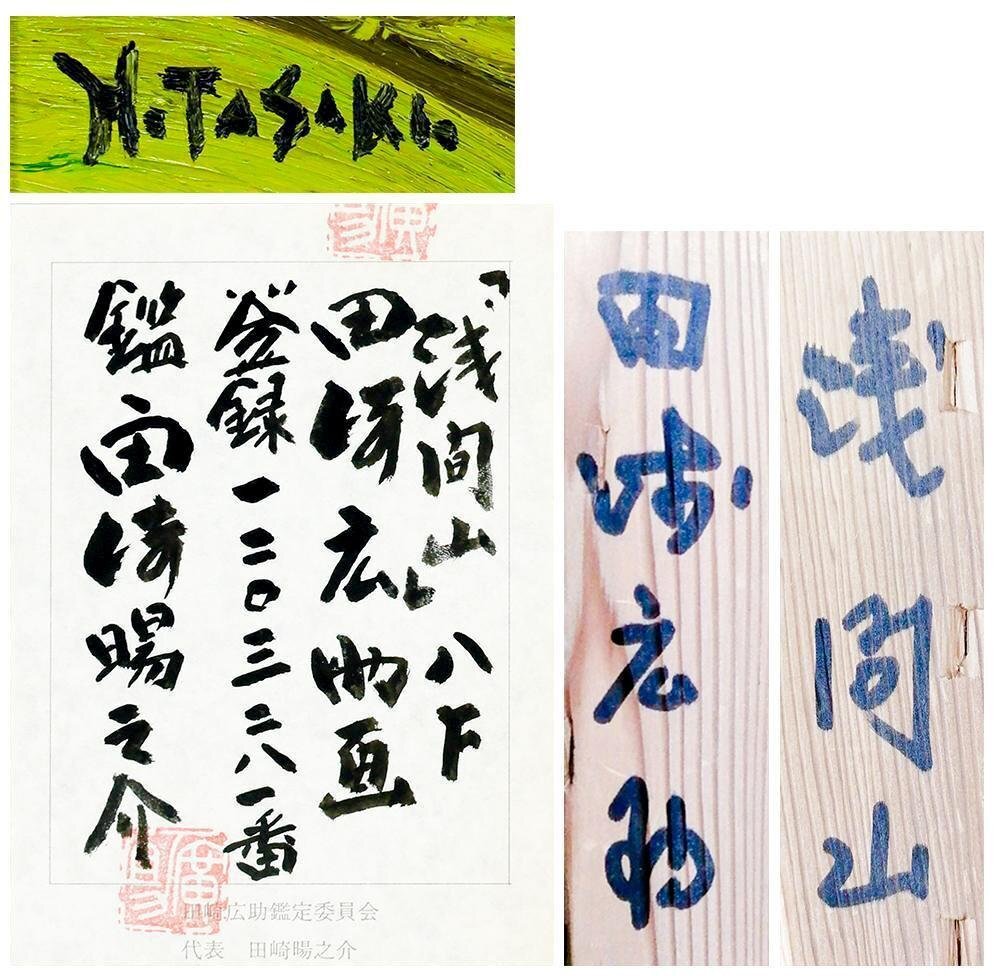 H.TASAKI.
「浅間山」八下
田崎広助画
登録一二〇三二八一番
鑑田崎暘之介
田崎広助鑑定委員会
代表 田崎暘之介
浅間山
田崎広助